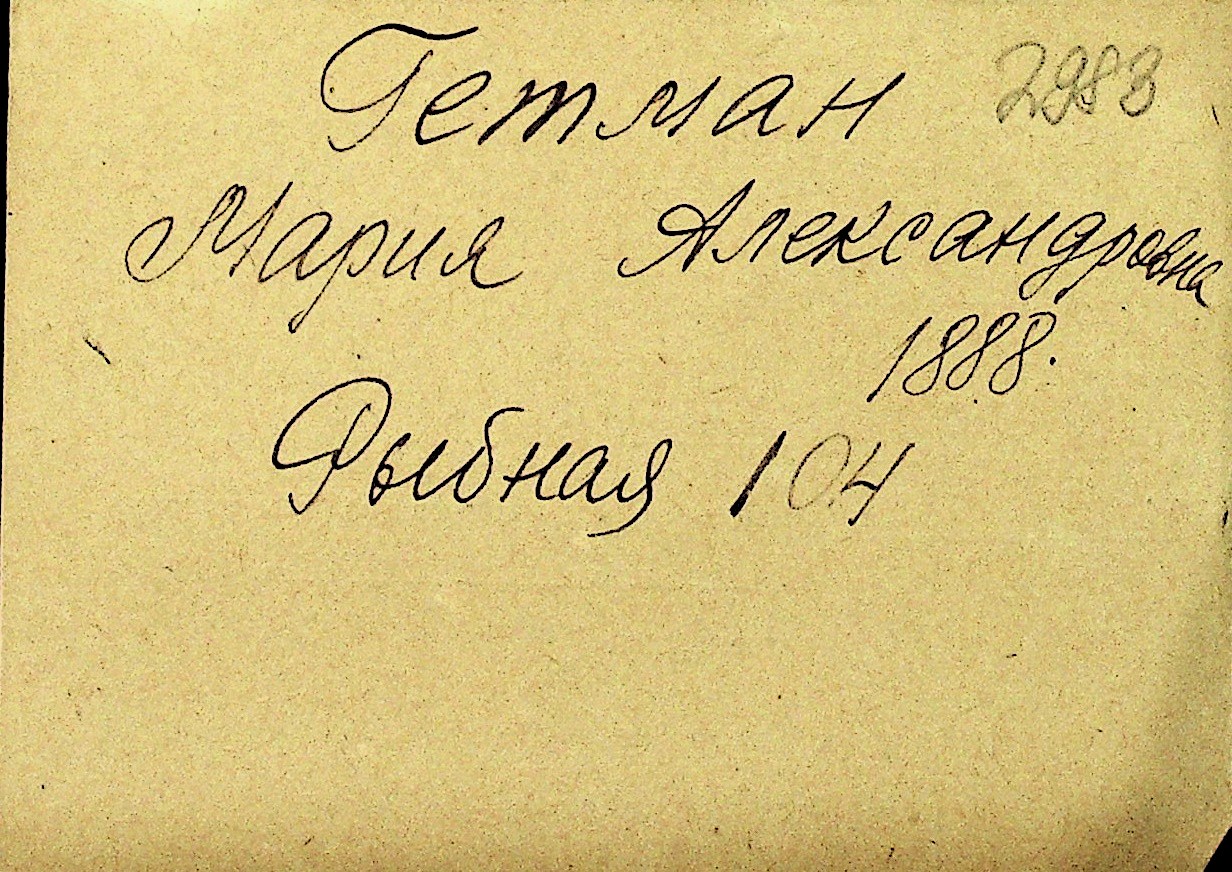 Гетман 2983
Мария Александровна
1888.
Рыбная 104